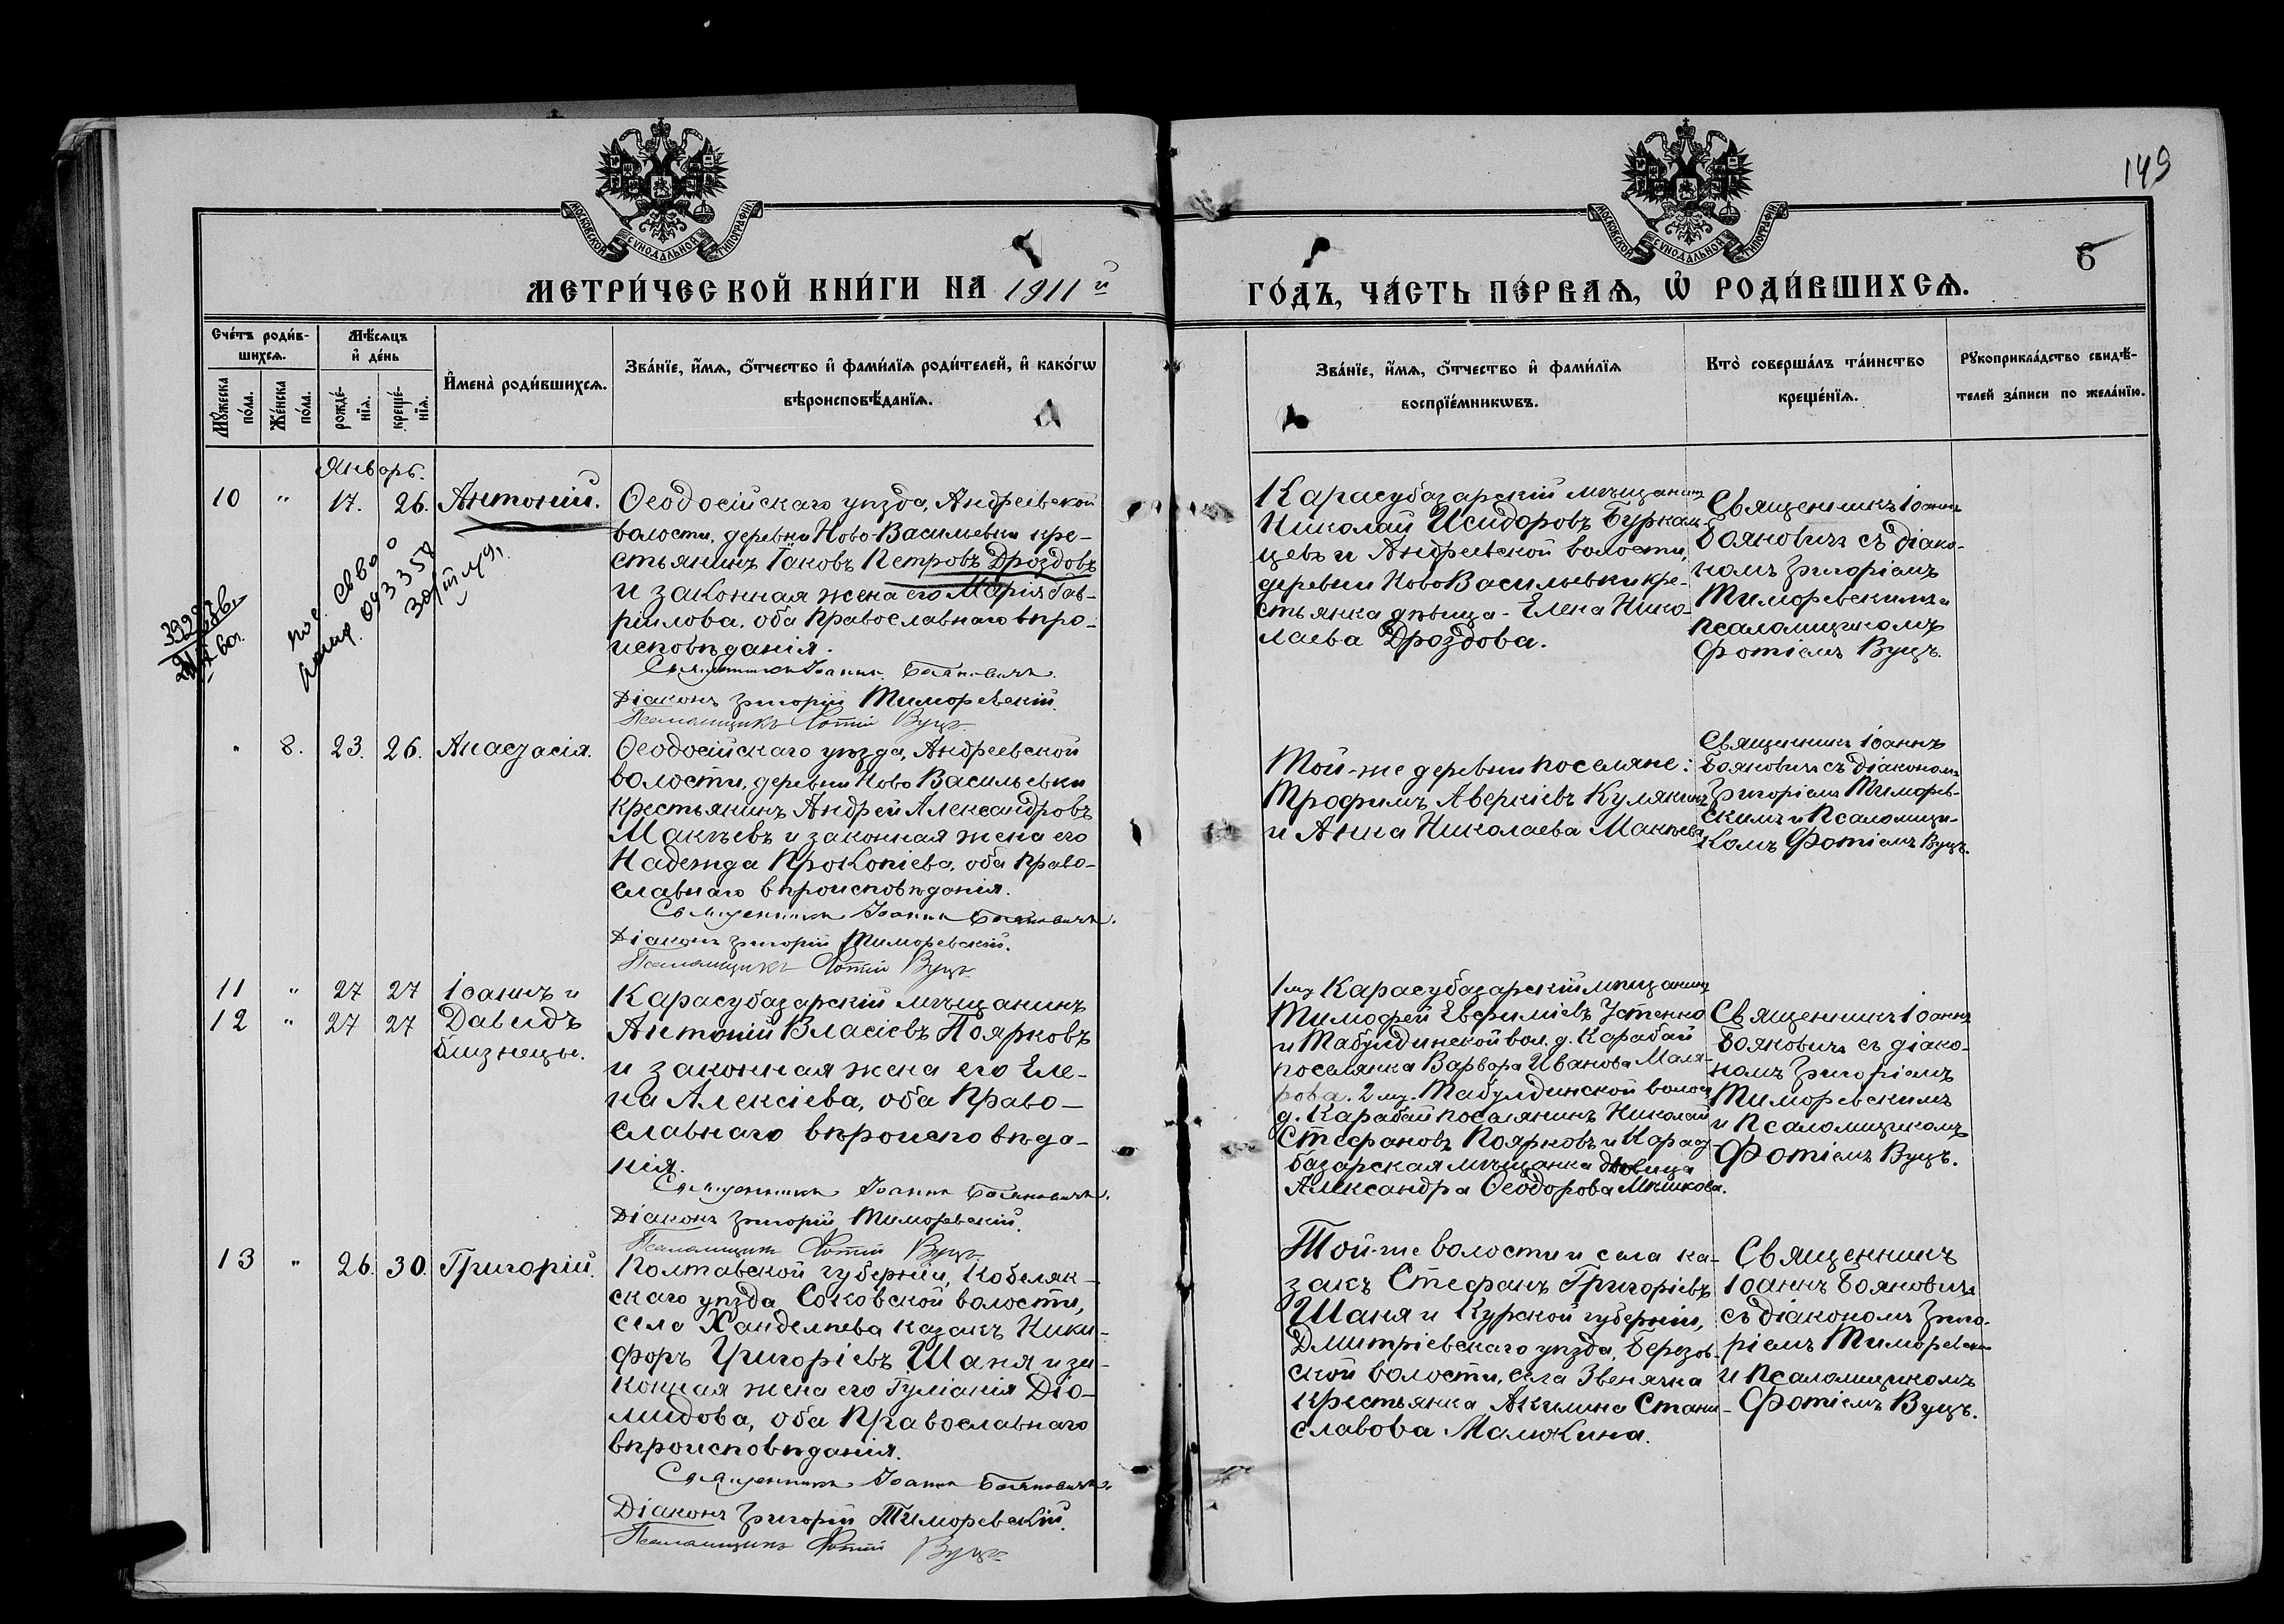 149
6
МОСКОВСКОЙ СѴНОДАЛЬНОЙ ТИПОГРАФІИ
МОСКОВСКОЙ СѴНОДАЛЬНОЙ ТИПОГРАФІИ
МЕТРИ́ЧЕСКОЙ КНИ́ГИ НА 1911 й
ГО́ДЪ, ЧА́СТЬ ПЕ́РВАѦ, Ѡ҆ РОДИ́ВШИХСѦ.
Сче́тъ роди́в-
шихсѧ.
Мꙋ́жеска по́ла.
Же́нска по́ла.
Мѣ́сѧцъ
и҆ де́нь
рожде́-
нїѧ.
креще́-
нїѧ.
И҆мена̀ роди́вшихсѧ.
Зва́нїе, и҆́мѧ, ѻ҆́тчество и҆ фами́лїѧ роди́телей, и҆ како́гѡ
вѣроисповѣ́данїѧ.
Зва́нїе, и҆́мѧ, ѻ҆́тчество и҆ фами́лїѧ
воспрїе́мникѡвъ.
Кто̀ соверша́лъ та́инство
креще́нїѧ.
Рꙋкоприкла́дство свидѣ́-
телей за́писи по жела́нїю.
Январь.
10 " 17. 26. Антоній.
Ѳеодосійскаго уѣзда, Андреевской
волости, деревни Ново-Васильевки кре-
стьянинъ Іаковъ Петровъ Дроздовъ
и законная жена его Марія Гав-
ріилова, оба Православнаго вѣро-
исповѣданія.
Священникъ Іоаннъ Бояновичъ.
Діаконъ Григорій Тиморевскій.
Псаломщикъ Фотій Вуцъ
Карасубазарскій мѣщанинъ
Николай Исидоровъ Буркан-
цевъ и Андреевской волости,
деревни НовоВасильевки кре-
стьянка дѣвица - Елена Нико-
лаева Дроздова.
Священникъ Іоаннъ
Бояновичъ съ діако-
номъ Григоріемъ
Тиморевскимъ и
псаломщикомъ
Фотіемъ Вуцъ.
" 8. 23. 26. Анастасія.
Ѳеодосійскаго уѣзда, Андреевской
волости, деревни Ново Васильевки
крестьянинъ Андрей Александровъ
Макѣевъ и законная жена его
Надежда Прокопіева, оба Право-
славнаго вѣроисповѣданія.
Священникъ Іоаннъ Бояновичъ.
Діаконъ Григорій Тиморевскій.
Псаломщикъ Фотій Вуцъ
Той-же деревни поселяне:
Трофимъ Аверкіевъ Кулякинъ
и Анна Николаева Макѣева
Священникъ Іоаннъ
Бояновичъ съ діакономъ
Григоріемъ Тиморев-
скимъ и Псаломщи-
комъ Фотіемъ Вуцъ.
11 " 27 27 Іоаннъ и
12 " 27 27 Давидъ
близнецы.
Карасубазарскій мѣщанинъ
Антоній Власіевъ Поярковъ
и законная жена его Еле-
на Алексіева, оба Право-
славнаго вѣроисповѣда-
нія.
Священникъ Іоаннъ Бояновичъ.
Діаконъ Григорій Тиморевскій.
Псаломщикъ Фотій Вуцъ
Карасубазарскій мѣщанинъ
Тимофей Евфиміевъ Устенко
и Табулдинской вол. д. Карабай
поселянка Варвара Иванова Маля-
рова. Табулдинской волос
д. Карабай поселянинъ Николай
Стефановъ Поярковъ и Карасу-
базарская мѣщанка дѣвица
Александра Ѳеодорова Мѣшкова.
Священникъ Іоаннъ
Бояновичъ съ діако-
номъ Григоріемъ
Тиморевскимъ
и Псаломщикомъ
Фотіемъ Вуцъ.
13 " 26. 30. Григорій.
Полтавской губерніи, Кобеляк-
скаго уѣзда Соковской волости,
села Ханделеева казакъ Ники-
форъ Григоріевъ Шаня и за-
конная жена его Гуліанія Діо-
мидова, оба Православнаго
вѣроисповѣданія.
Священникъ Іоаннъ Бояновичъ.
Діаконъ Григорій Тиморевскій.
Псаломщикъ Фотій Вуцъ
Той-же волости и села ка-
закъ Стефанъ Григоріевъ
Шаня и Курской губерніи,
Дмитріевскаго уѣзда, Березов-
ской волости, села Звенячка
крестьянка Акилина Стани-
славова Малюкина.
Священникъ
Іоаннъ Бояновичъ
съ діакономъ Григо-
ріемъ Тиморевским
и Псаломщикомъ
Фотіемъ Вуцъ.